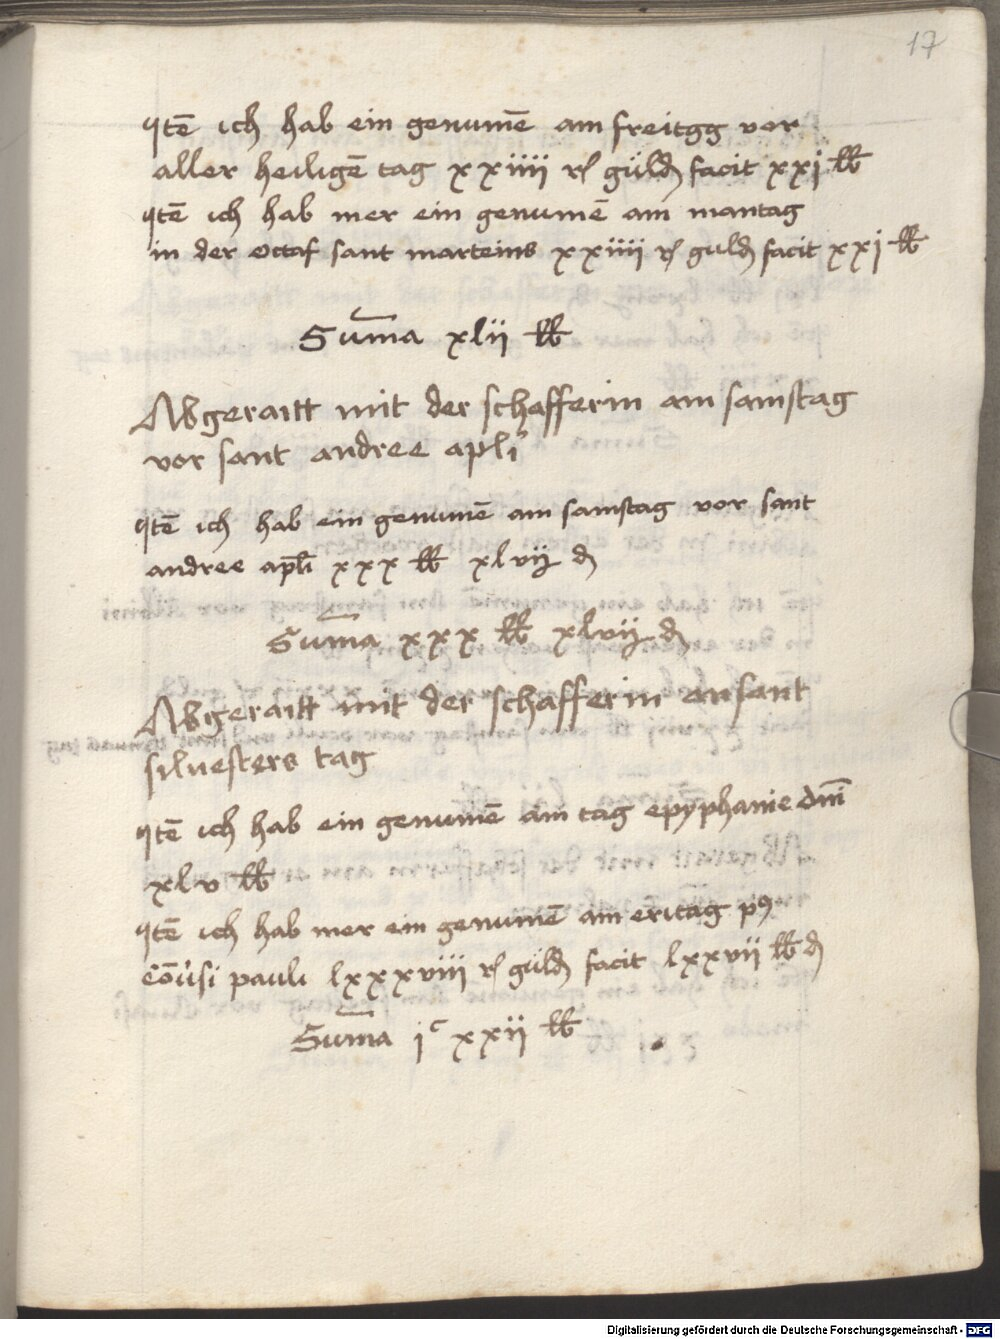 17
Itē ich hab ein genumē am freitgg vor
aller heiligē tag xxiiii rł güldꝫ facit xxj lb
Itē ich hab mer ein genumē am mantag
in der octaf sant marteins xxiiii rł guldꝫ facit xxj lb
Sum̄a xlii lb
Abgeraitt mit der schafferin am samstag
vor sant andree apli
Itē ich hab ein genumē am samstag vor sant
andree apli xxx lb xlvij ₰
Sum̄a xxx lb xlvij ₰
Abgeraitt mit der schafferin an sant
siluesters tag
Itē ich hab ein genumē am tag epyphanie dn̄i
xlv lb
Itē ich hab mer ein genumē am eritag pꝰ
cōu̓si pauli lxxxviii rł güldꝫ facit lxxvii lb ₰
Sum̄a jᶜ xxii lb
Digitalisierung gefördert durch die Deutsche Forschungsgemeinschaft - DFG